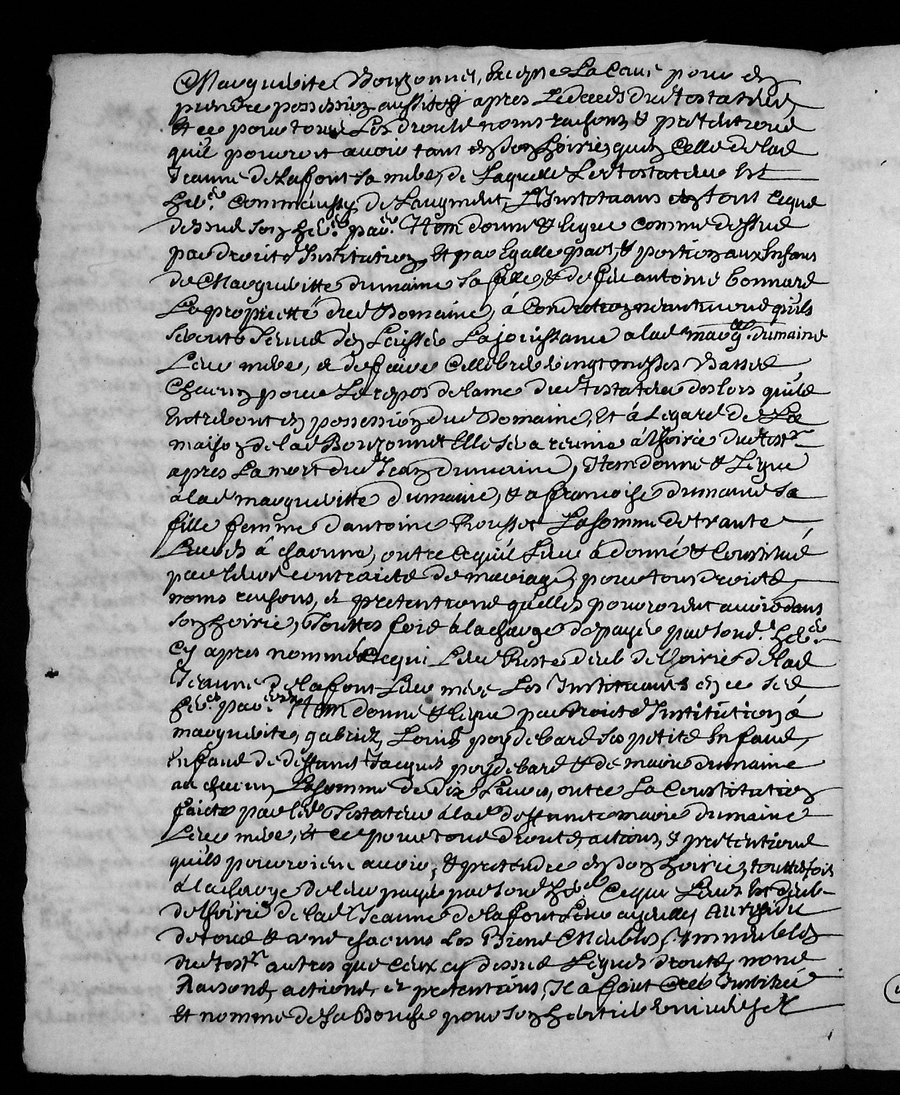 Marguerite Bouzonnet, Excepte La Cave pour en
prendre possession aussitost apres Le deceds dud testateur
Et ce pour tous Les droits noms raisons & pretentions
quil pouroit avoir tant en son hoirie quen Celle de lad
Jeanne de Lafont sa mere, de Laquelle Led testateur Est
her.er de Laugment, L'Instituans en tout ce que
dessus son her.er par.er Item donne & legue comme dessus
par droit d'Institution, Et par Egalle part, & portion aux Enfans
de Margueritte dumaine sa fille, & de feu antoine bonnard
La proprietté dud Domaine, à Condition neantmoins quils
seront tenus den Laisser La jouissance a lad marg.te dumaine
Leur mere, & de faire Cellebrer vingt messes Basses
Chacun pour Le repos de lame dud testateur des lors quils
Entreront en possession dud Domaine, Et à Legard de La
maison de lad Bouzonnet Elle sera reunie à Lhoirie dud test.r
apres La mort dud Jean Dumaine, Item donne & Legue
à lad margueritte dumaine, & a francoise dumaine sa
fille femme d'antoine Rousset La somme de trante
Livres à chacune, outre ce quil Leur à donné & Constitué
par leurs contraicts de mariage, pour tous Droits,
noms raisons, & pretentions quelles pouroient avoir dans
son hoirie, Touttes fois à la charge de payer par sond. her.er
Cy apres nommé ce qui Leur Reste deub de Lhoirie de lad
Jeanne de lafont Leur mere Les Instituans en ce ses
her.es par.eres Item donne & legue par droit d'Institution à
marguerite, gabriel, Louis poydebard ses petits Enfans,
Enfans de deffunts Jacques poydebard & de marie dumaine
au chacun La somme de dix Livres, outre La Constitution
faicte par led Testateur à lad deffunte marie dumaine
Leur mere, Et ce pour tous droits, actions, & pretentions
quils pouroient avoir, & pretendre en son hoirie, touttes fois
à la charge de leur payer par sond her.er Ce que Leur Est deub
de Lhoirie de lad Jeanne de lafont Leur ayeulle, Au residu
de tous & uns chacuns Les Biens Meubles, Immeubles
dud test.r autres que ceux cy dessus Legués droits, noms
Raisons, actions, & pretentions, Il a faict Cree Institué
Et nomme de sa Bouche pour son heritier universel